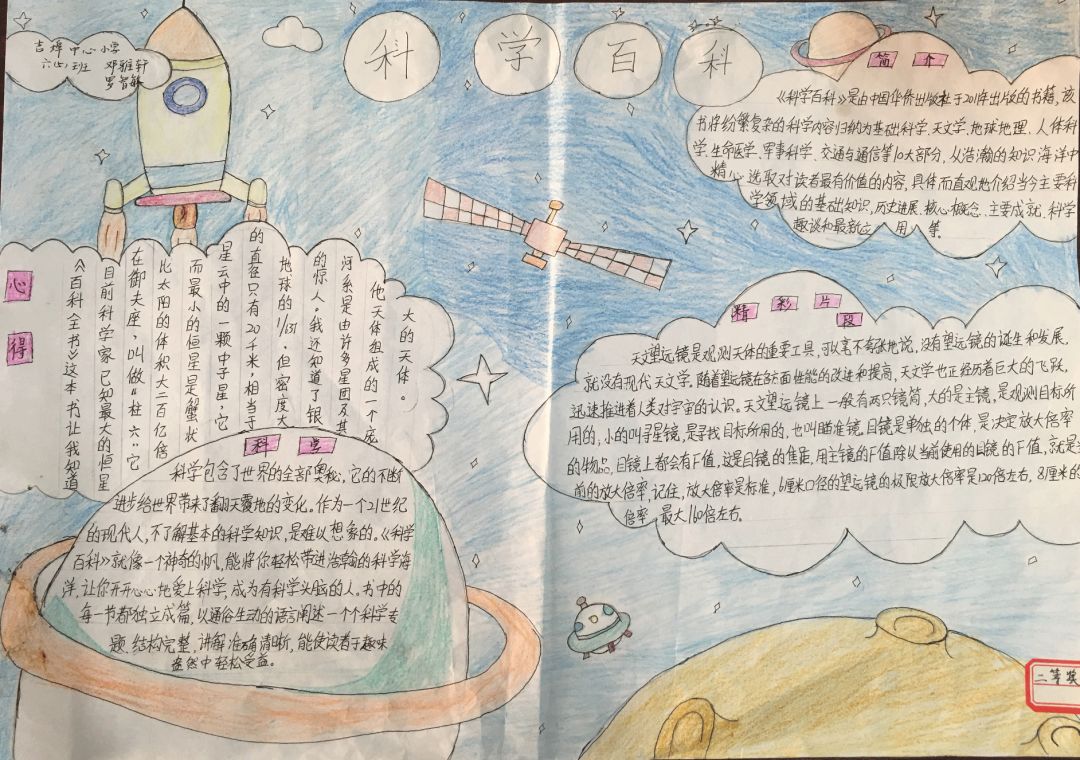 中心小学
六(四)班 邓雅轩
罗智敏
科学百科
简介
《科学百科》是由中国华侨出版社于2011年出版的书籍,该
书将纷繁复杂的科学内容归纳为基础科学、天文学、地球地理、人体科
学、生命医学、军事科学、交通与通信等10大部分,从浩瀚的知识海洋中
精心选取对读者最有价值的内容,具体而直观地介绍当今主要科
学领域的基础知识、历史进展、核心概念、主要成就、科学
趣谈和最新应用等。
心得
《百科全书》这本书让我知道
目前科学家已知最大的恒星
在御夫座,叫做"柱六"它
比太阳的体积大二百亿倍
而最小的恒星是蟹状
星云中的一颗中子星,它
的直径只有20千米,相当于
地球的1/637,但密度大
的惊人。我还知道了银
河系是由许多星团及其
他天体组成的一个庞
大的天体。
精彩片段
天文望远镜是观测天体的重要工具,可以毫不夸张地说,没有望远镜的诞生和发展,
就没有现代天文学。随着望远镜在各方面性能的改进和提高,天文学也正经历着巨大的飞跃,
迅速推进着人类对宇宙的认识。天文望远镜上一般有两只镜筒,大的是主镜,是观测目标所
用的,小的叫寻星镜,是寻找目标所用的,也叫瞄准镜。目镜是单独的个体,是决定放大倍率
的物品,目镜上都会有F值,这是目镜的焦距,用主镜的F值除以当前使用的目镜的F值,就是当
前的放大倍率,记住,放大倍率是标准,6厘米口径的望远镜的极限放大倍率是120倍左右,8厘米的
倍率最大160倍左右。
科学
科学包含了世界的全部奥秘,它的不断
进步给世界带来了翻天覆地的变化。作为一个21世纪
的现代人,不了解基本的科学知识,是难以想象的。《科学
百科》就像一个神奇的帆,能将你轻松带进浩瀚的科学海
洋,让你开开心心地爱上科学,成为有科学头脑的人。书中的
每一节都独立成篇,以通俗生动的语言阐述一个个科学专
题,结构完整,讲解准确清晰,能使读者于趣味
盎然中轻松受益。
二等奖